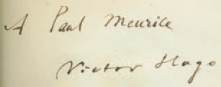 A Paul Meurice
Victor Hugo